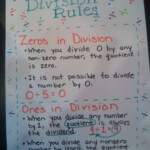 Division
Rules
Zeros in Division
• When you divide 0 by any
non-zero number, the quotient
is zero.
• It is not possible to divide
a number by 0.
0÷5=0
Ones in Division
• When you divide any number
by 1, the quotient is always
the dividend. 4÷1=4
• When you divide any nonzero